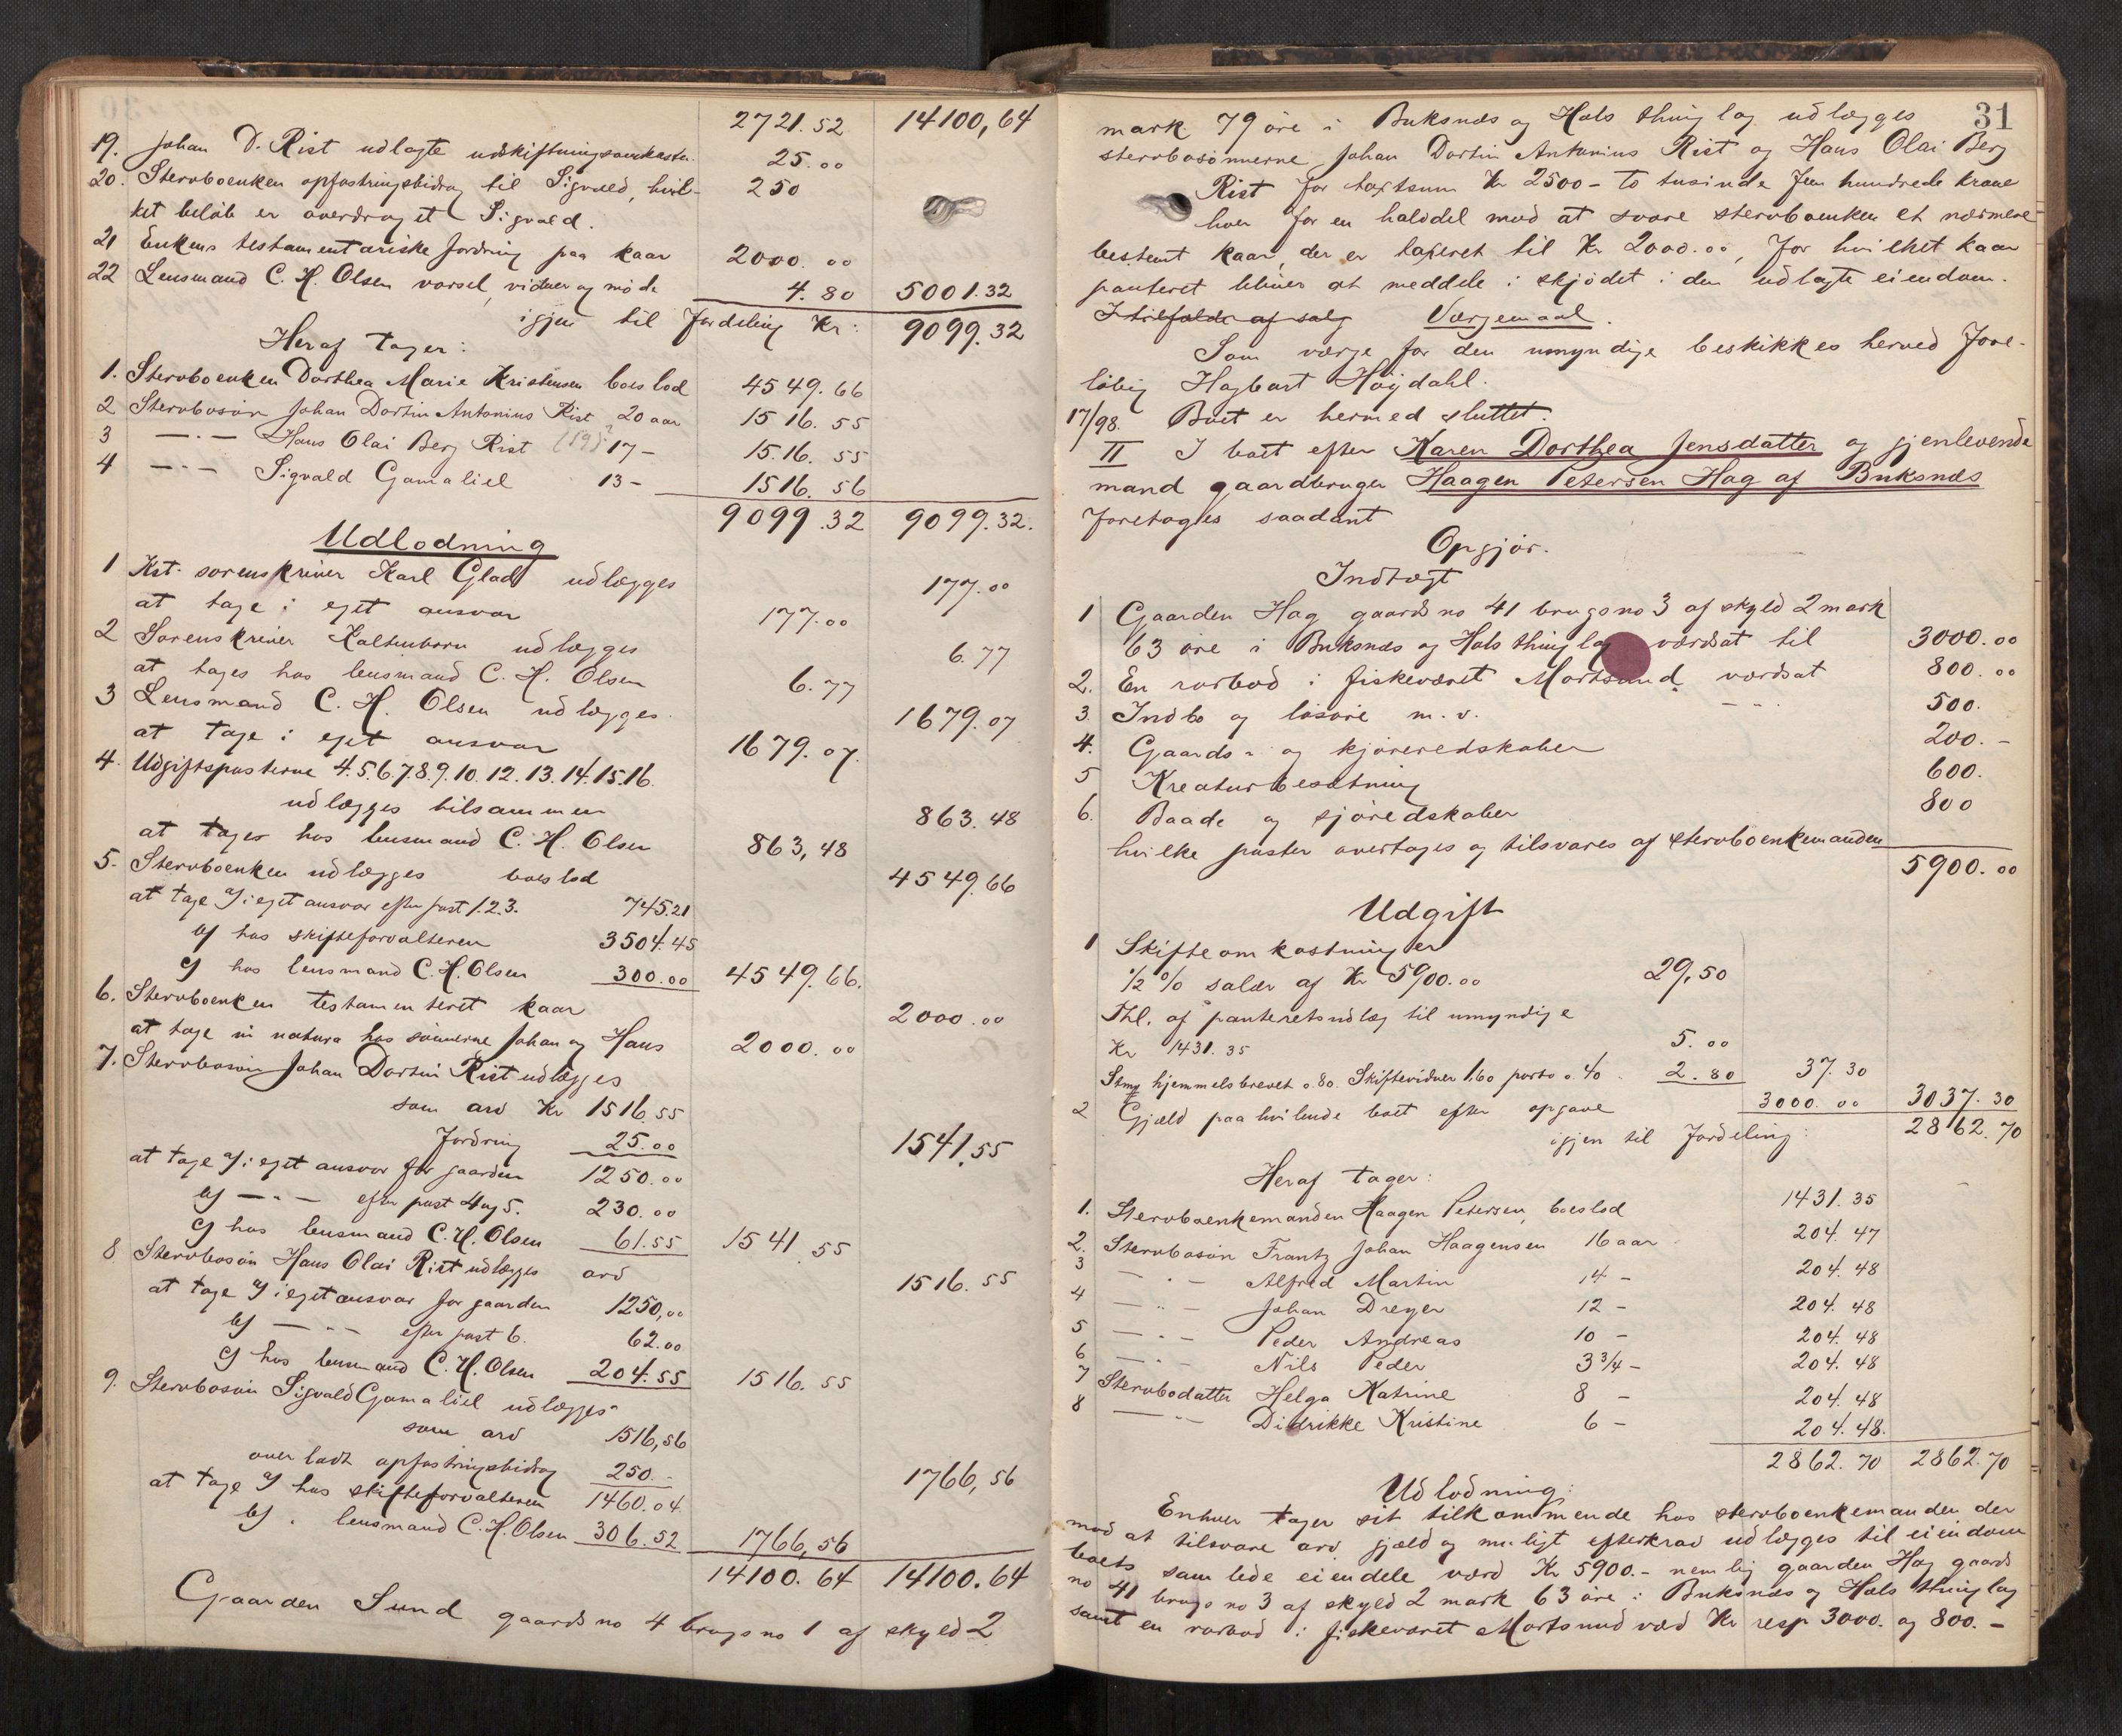 2721.52 14100,64
19. Johan D. Rist udlagte udskiftningsomkostn. 25.00
20. Stervboenken opfostringsbidrag til Sigvald, hvil- 250
ket beløb er overdraget Sigvald.
21 Enkens testamentariske fordring paa kaar 2000.00
22 Lensmand C. H. Olsen varsel, vidner og møde 4.80 5001.32
igjen til fordeling Kr: 9099.32
Heraf tager:
1. Stervboenken Dorthea Marie Kristensen boeslod 4549.66
2 Stervbosøn Johan Dortin Antonius Rist 20 aar 1516.55
3 —·— Hans Olai Berg Rist (19)? 17 — 1516.55
4 —·— Sigvald Gamaliel 13 — 1516.56
9099.32 9099.32.
Udlodning
1 Kst. sorenskriver Karl Glad udlægges 177.00
at tage i eget ansvar 177.00
2 Sorenskriver Kaltenborn udlægges 6.77
at tages hos lensmand C. H. Olsen 6.77
3 Lensmand C. H. Olsen udlægges 1679.07
at tage i eget ansvar 1679.07.
4. Udgiftsposterne 4.5.6.7.8.9.10.12.13.14.15.16.
udlægges tilsammen 863.48
at tages hos lensmand C. H. Olsen 863,48
5. Stervboenken udlægges boeslod 4549.66
at tage a) i eget ansvar efter post 1.2.3. 745.21
b) hos skifteforvalteren 3504.45
c) hos lensmand C. H. Olsen 300.00 4549.66.
6. Stervboenken testamenteret kaar 2000.00
at tage in natura hos sønnerne Johan og Hans 2000.00
7. Stervbosøn Johan Dortin Rist udlægges
som arv Kr 1516.55
Fordring 25.00 1541,55
at tage a) i eget ansvar for gaarden 1250.00
b) —·— efter post 4 og 5. 230.00
c) hos lensmand C. H. Olsen 61.55 1541.55
8 Stervbosøn Hans Olai Rist udlægges arv 1516.55
at tage a) i eget ansvar for gaarden 1250,00
b) —·— efter post 6. 62.00
c) hos lensmand C. H. Olsen 204.55 1516.55
9. Stervbosøn Sigvald Gamaliel udlægges
som arv 1516,56
overladt opfostringsbidrag 250.- 1766,56
at tage a) hos skifteforvalteren 1460.04
b) . lensmand C. H. Olsen 306.52 1766,56
14100.64 14100.64
Gaarden Sund gaards no 4 brugs no 1 af skyld 2
31
mark 79 øre i Buksnæs og Hols thinglag udlægges
stervbosønnerne Johan Dortin Antonius Rist og Hans Olai Berg
Rist for taxtsum Kr 2500 - to tusinde fem hundrede krone
hver for en halvdel mod at svare stervboenken et nærmere
bestemt kaar, der er taxeret til Kr 2000.00, for hvilket kaar
panteret bliver at meddele i skjødet i den udlagte eiendom.
I tilfælde af salg Værgemaal.
Som værge for den umyndige beskikkes herved fore-
løbig Hagbart Høydahl.
17/98. Boet er hermed sluttet.
II I boet efter Karen Dorthea Jensdatter og gjenlevende
mand gaardbruger Haagen Petersen Hag af Buksnæs
foretages saadant
Opgjør.
Indtægt
1 Gaarden Hag gaards no 41 brugs no 3 af skyld 2 mark
63 øre i Buksnæs og Hols thinglag værdsat til 3000.00
2. En rorbod i fiskeværet Mortsund værdsat 800.00
3. Indbo og løsøre m. v. —·— 500.
4. Gaards- og kjøreredskaber 200.-
5 Kreaturbesætning 600.
6. Baade og sjøredskaber 800
hvilke poster overtages og tilsvares af stervboenkemanden
5900.00
Udgift
1 Skifteomkostninger
1/2 % salær af Kr 5900.00 29,50
Thl. af panteretsudlæg til umyndige
Kr 1431.35 5.00
Stmp hjemmelsbrevet 0.80. Skiftevidner 1,60 porto 0.40 2.80 37.30
2 Gjæld paahvilende boet efter opgave 3000.00 3037.30
igjen til fordeling: 2862.70
Heraf tager:
1. Stervboenkemanden Haagen Petersen, boeslod 1431.35
2. Stervbosøn Frantz Johan Haagensen 16 aar 204.47
3 —·— Alfred Martin 14 - 204.48
4 —·— Johan Dreyer 12 - 204.48
5 —·— Peder Andreas 10 - 204.48
6 —·— Nils Peder 3 3/4 - 204.48
7 Stervbodatter Helga Katrine 8 - 204.48
8 —·— Didrikke Kristine 6 - 204.48.
2862.70 2862.70
Udlodning:
Enhver tager sit tilkommende hos stervboenkemanden der
mod at tilsvare arv, gjæld og muligt efterkrav udlægges til eiendom
boets samlede eiendele værd Kr 5900.- nemlig gaarden Hag gaards
no 41 brugs no 3 af skyld 2 mark 63 øre i Buksnæs og Hols thinglag
samt en rorbod i fiskeværet Mortsund værd Kr resp 3000. og 800.-